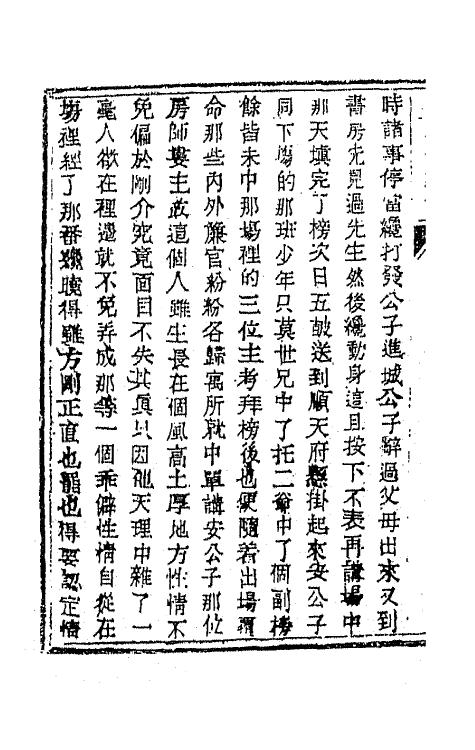 時諸事停當纔打發公子進城公子辭過父母出來又到
書房先見過先生然後纔動身這且按下不表再講場中
那天填完了榜次日五鼓送到順天府懸掛起來安公子
同下塲的那班少年只莫世兄中了托二爺中了個副榜
餘皆未中那塲裡的三位主考拜榜後也便隨着出塲覆
命那些內外簾官紛紛各歸寓所就中單講安公子那位
房師婁主政這個人雖生長在個風高土厚地方性情不
免偏於剛介究竟面目不失其真只因他天理中雜了一
毫人欲在裡邊就不免弄成那等一個乖僻性情自從在
塲裡經了那番纔曉得雖方剛正直也罷也得要認定情